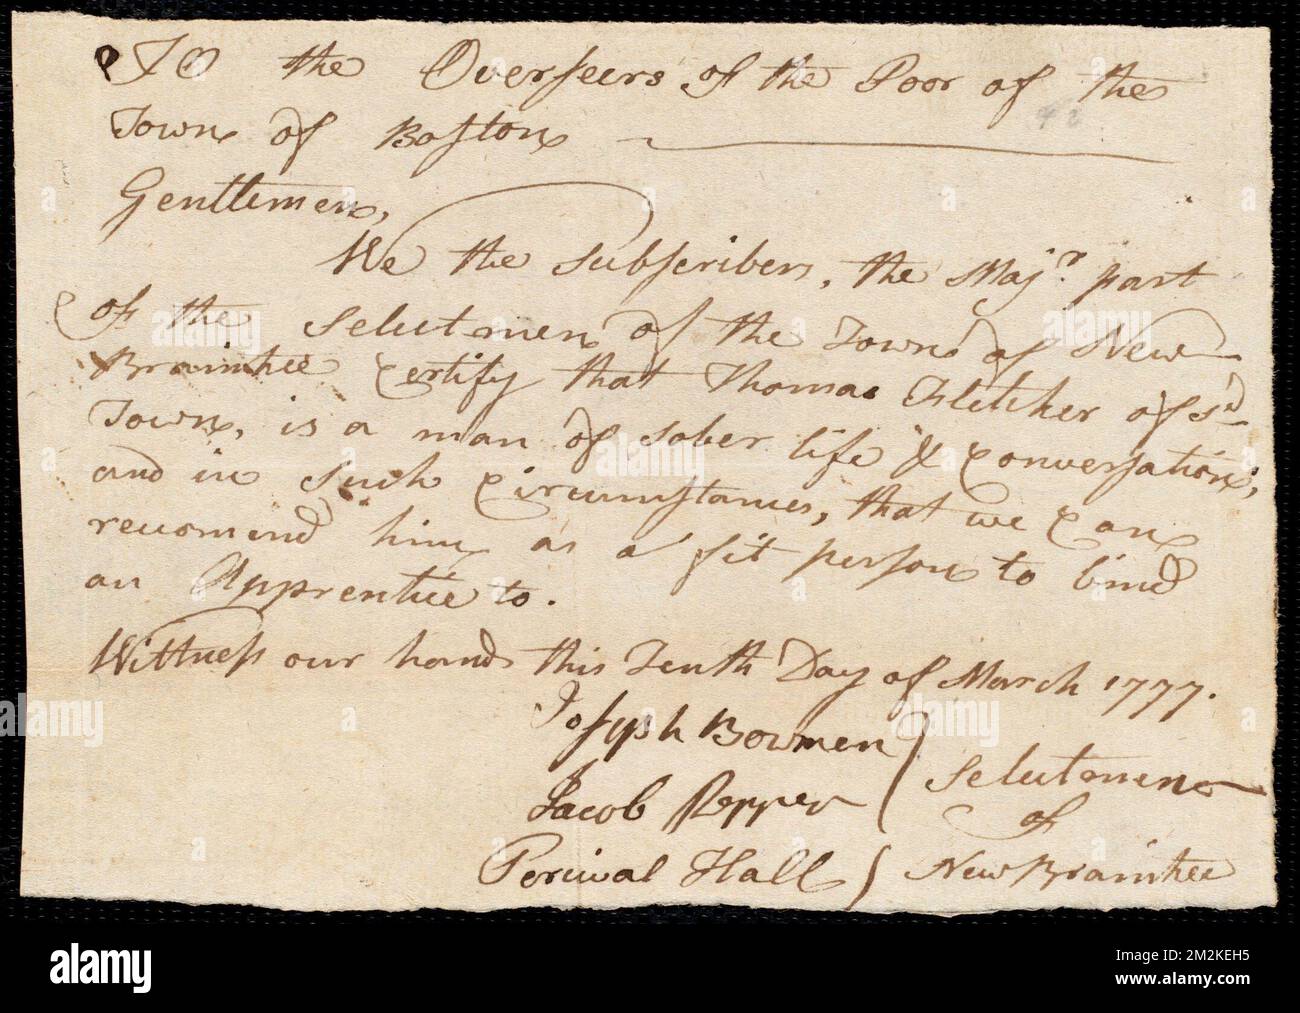 To the Overseers of the Poor of the
42
Town of Boston
Gentlemen,
We the Subscribers, the Majr. part
of the Selectmen of the Town of New
Braintree Certify that Thomas Fletcher of sd.
Town, is a man of sober life & Conversation,
and in such Circumstances, that we can
recomend him as a fit person to bind
an Apprentice to.
Witness our hands this Tenth Day of March 1777.
Joseph Bowmen
Jacob Pepper
Percival Hall
Selectmen
of
New Braintree
a alamy
Image ID: 2M2KEH5
www.alamy.com